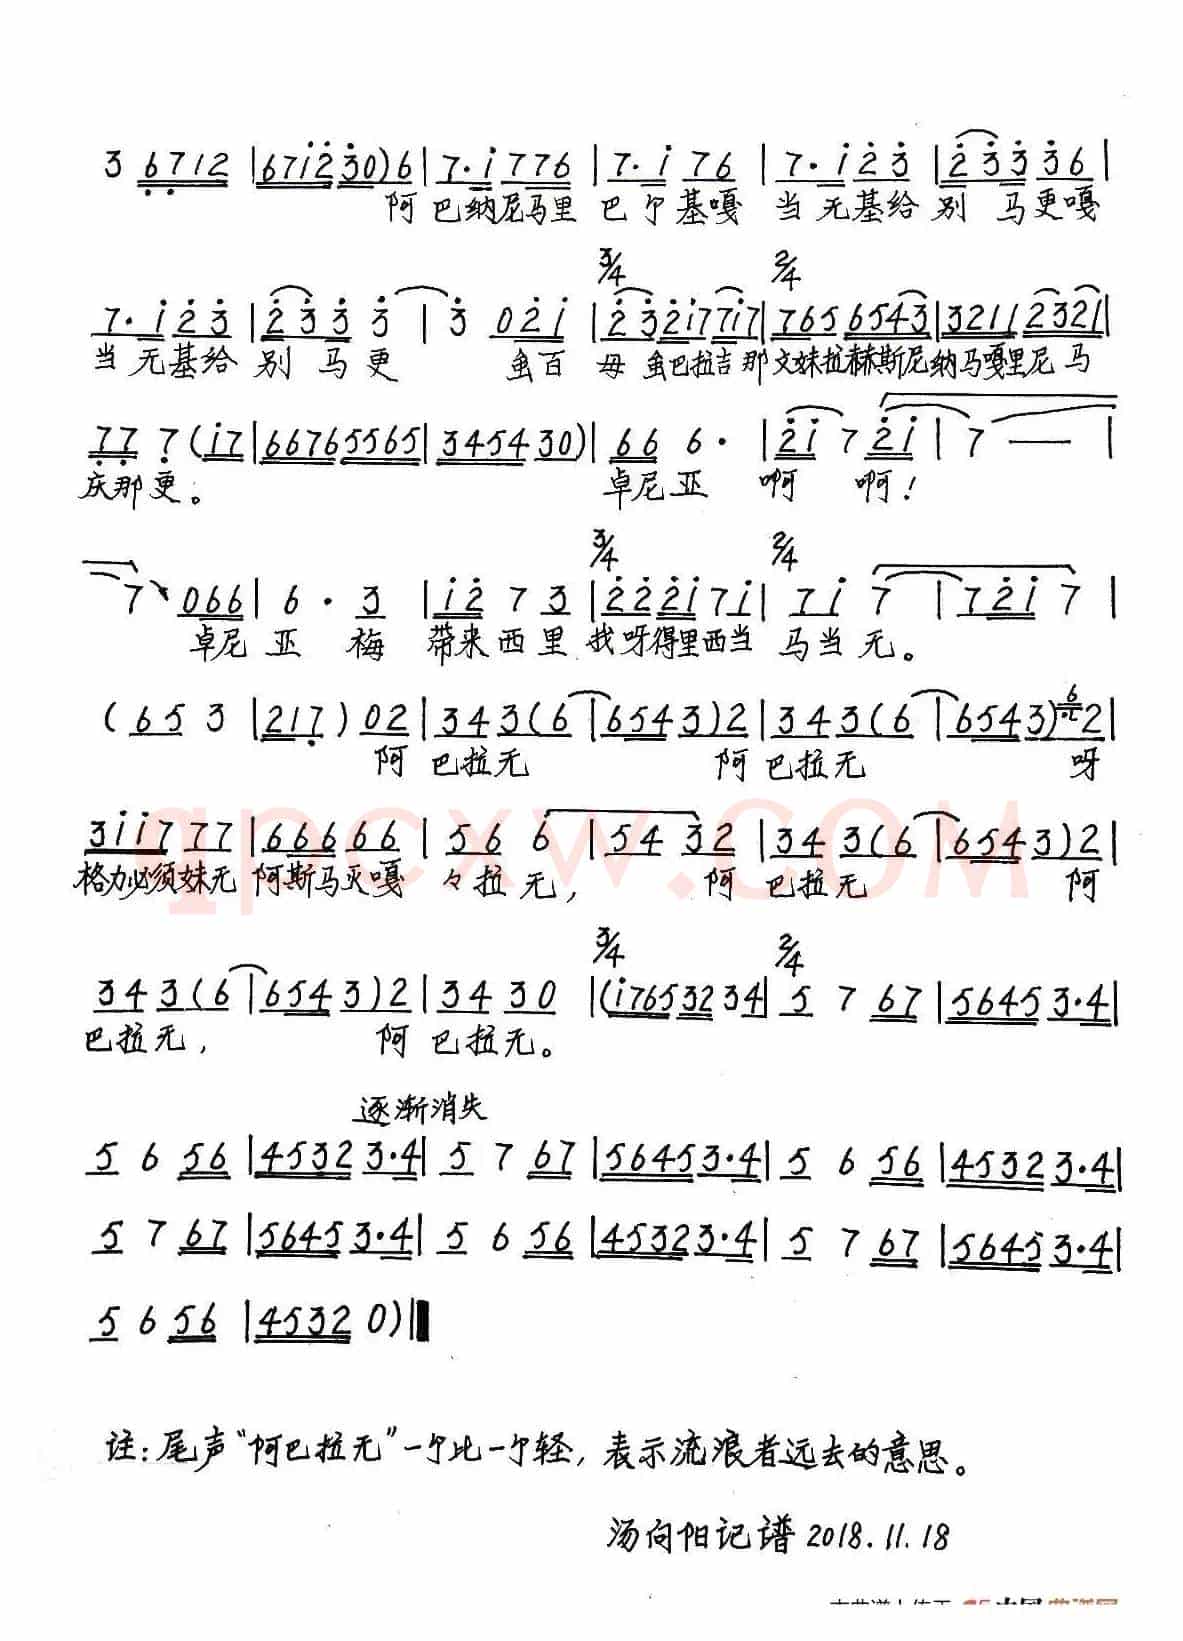 3 6712 |6712 30)6|7·1 776|7·1 76 |7·1 2 3|2 3 3 36|
阿 巴纳尼马里 巴个基嘎 当无基给 别 马更嘎
3/4 2/4
7·1 2 3|2 3 3 3|3 021|232177 17|765 6543|3211 2321|
当无基给 别 马更 虽百 母 虽巴拉吉那 文妹拉赫斯尼纳马嘎里尼马
77 7(17|66765565|345430)|66 6·|21 7 21|7 — |
庆那更。 卓尼亚 啊 啊!
3/4 2/4
7 066|6· 3|12 7 3|222171|71 7|721 7|
卓尼亚 梅 带来西里 找呀得里西当 马当无。
(65 3 |217)02|343(6|6543)2|343(6|6543)6 2|
阿 巴拉无 阿 巴拉无 呀
3117 77|66666|56 6|54 32|343(6|6543)2|
格力必须妹无 阿斯马灭嘎 々拉无, 阿 巴拉无 阿
3/4 2/4
343(6|6543)2|34 30|(176532 34|5 7 67|56453·4|
巴拉无, 阿 巴拉无。
逐渐消失
5 6 56|45323·4|5 7 67|56453·4|5 6 56|45323·4|
5 7 67|56453·4|5 6 56|45323·4|5 7 67|56453·4|
5 6 56|4532 0)‖
qpcxw.COM
注:尾声“阿巴拉无”一个比一个轻,表示流浪者远去的意思。
汤向阳记谱 2018.11.18